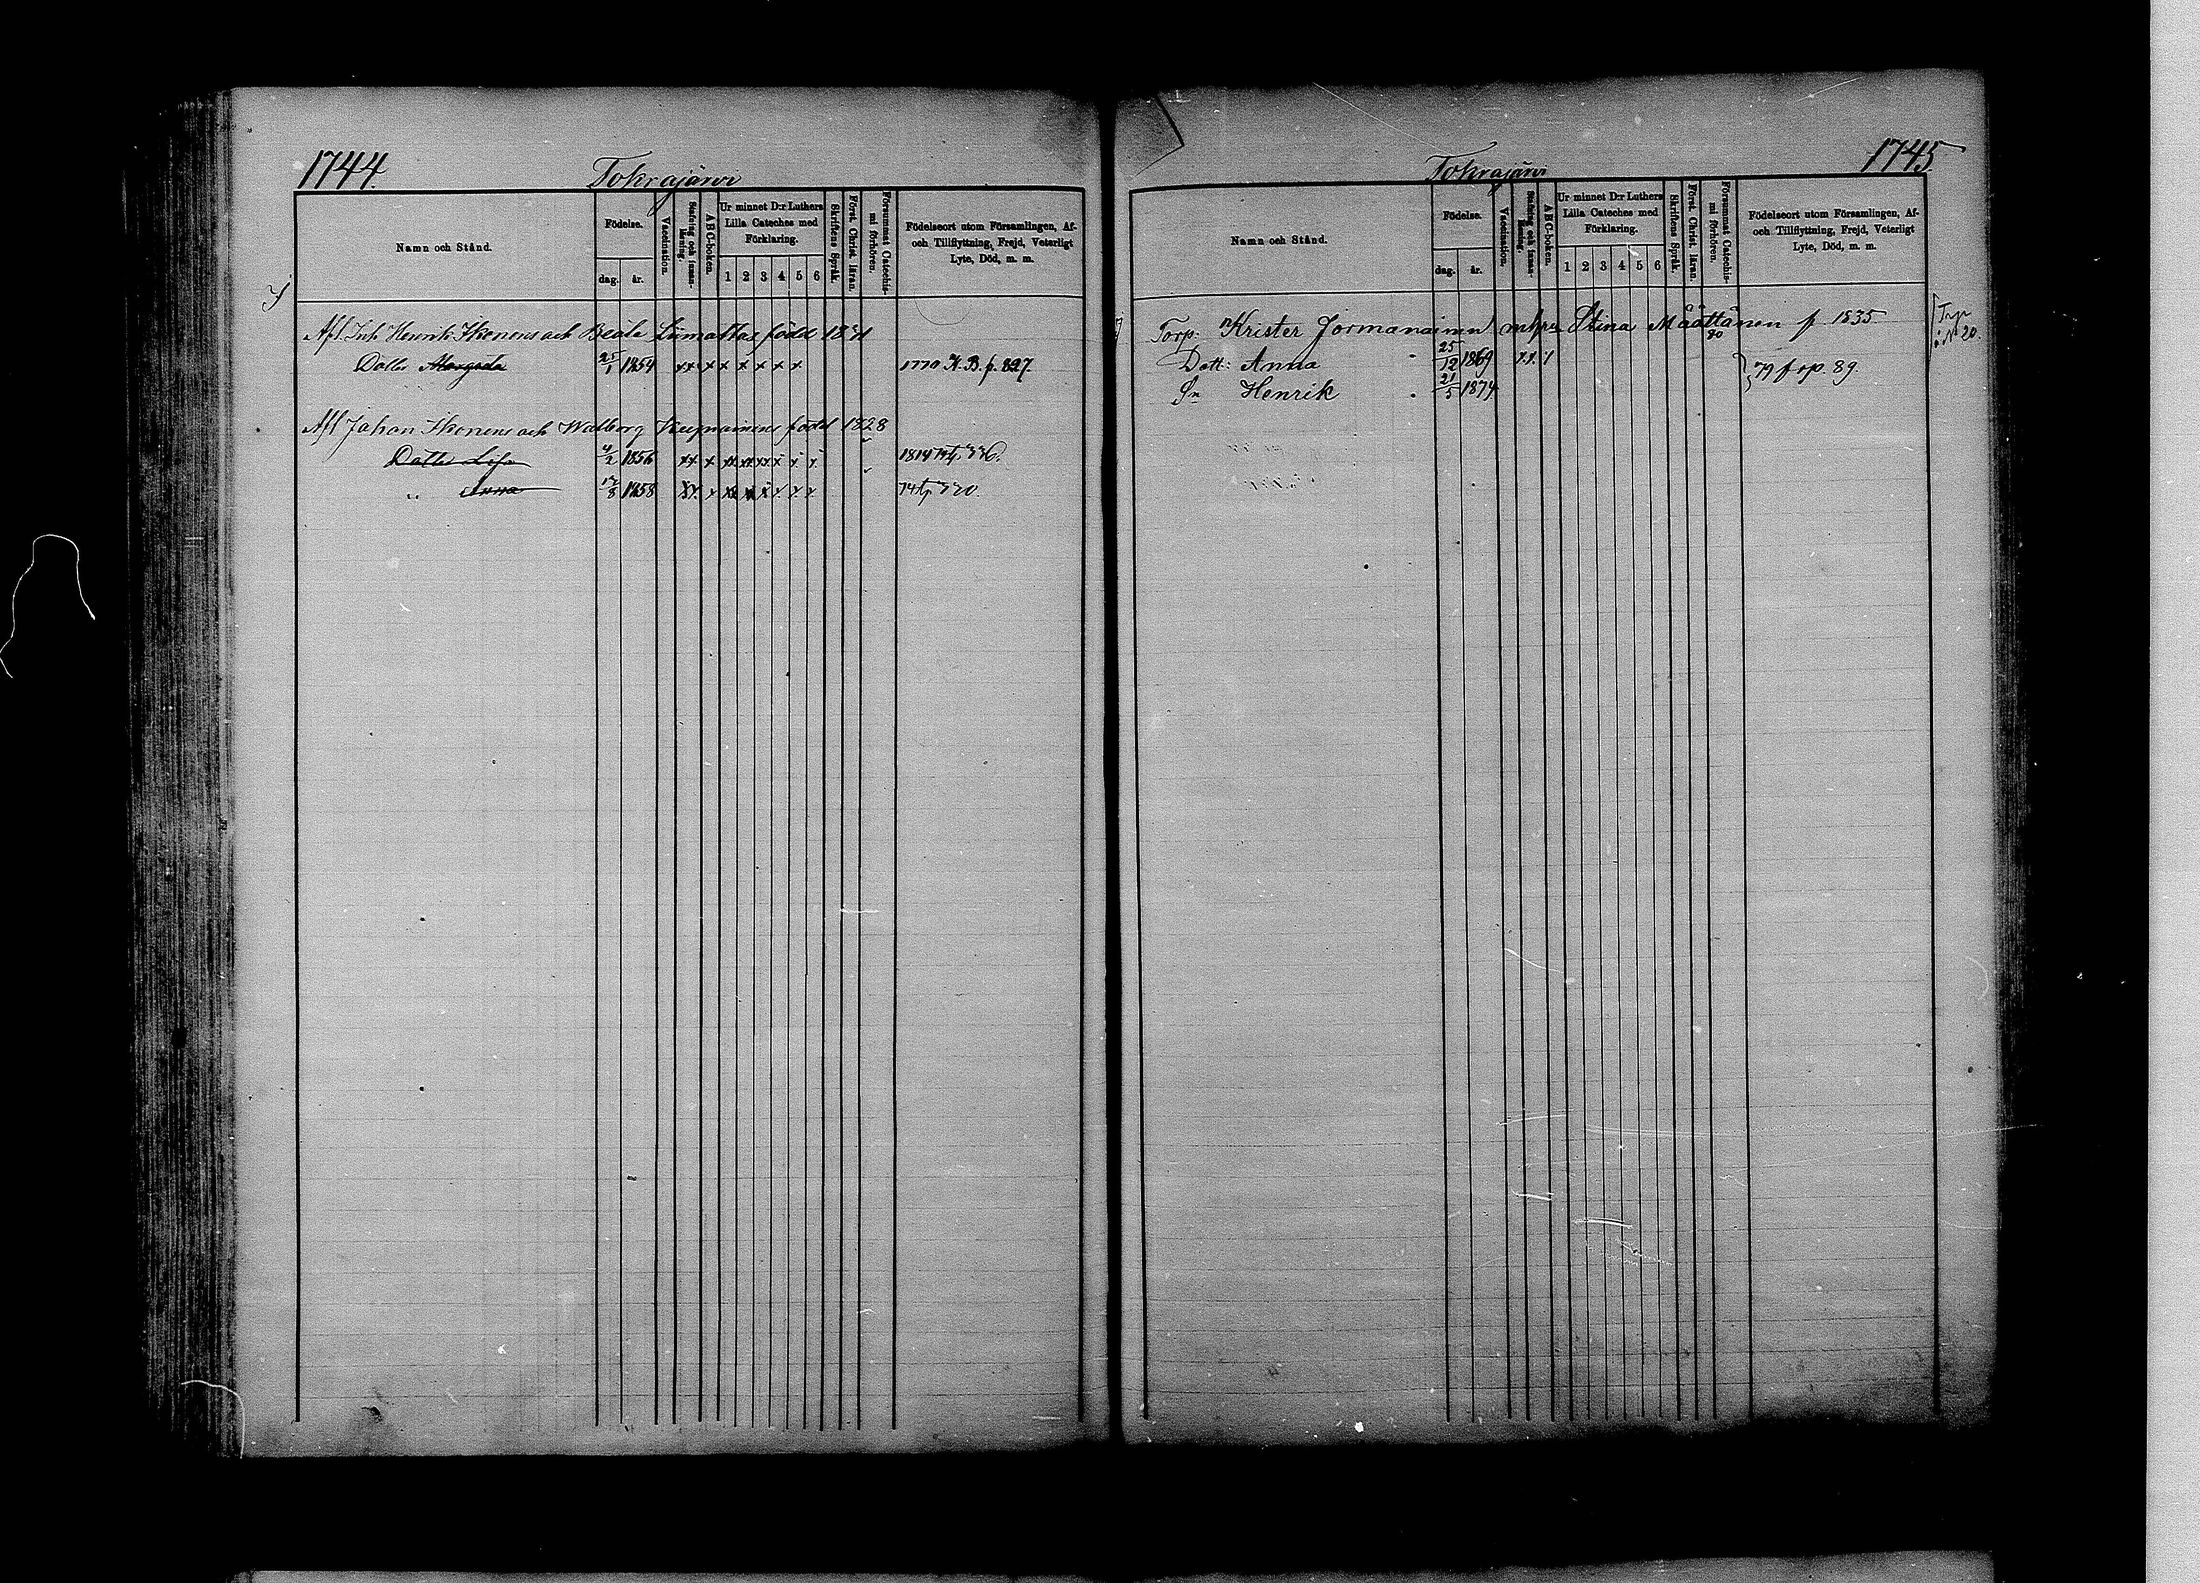 1744.
Tokrajärvi
Namn och Stånd.
Födelse.
dag.
år.
Vaccination.
Stafning och innan-läsning.
A B C-boken.
Ur minnet D:r Luthers Lilla Cateches med Förklaring.
1 2 3 4 5 6
Skriftens Språk.
Först. Christ. läran.
Försummat Catechis-mi förhören.
Födelseort utom Församlingen, Af- och Tillflyttning, Frejd, Veterligt Lyte, Död, m. m.
Afl. Inh. Henrik Ikonens och Beata Liimattas född 1831
Dotter Margeta 25/1 1854 xx x x x x x x 1770 K. B. p. 827
Afl Johan Ikonens och Walborg född 1828
Dotter Lisa 4/2 1856 xx x xx xx xx x x x
" Anna 17/8 1858
1745
Tokrajärvi
Namn och Stånd.
Födelse.
dag.
år.
Vaccination.
Stafning och innan-läsning.
A B C-boken.
Ur minnet D:r Luthers Lilla Cateches med Förklaring.
1 2 3 4 5 6
Skriftens Språk.
Först. Christ. läran.
Försummat Catechis-mi förhören.
Födelseort utom Församlingen, Af- och Tillflyttning, Frejd, Veterligt Lyte, Död, m. m.
Torp: Krister Jormanainen Stina Määttänen f 1835
80
Torp
i No 20.
Dott: Anna 25/12 1869 x x 1
79 f. op. 89
Sn Henrik 21/5 1874